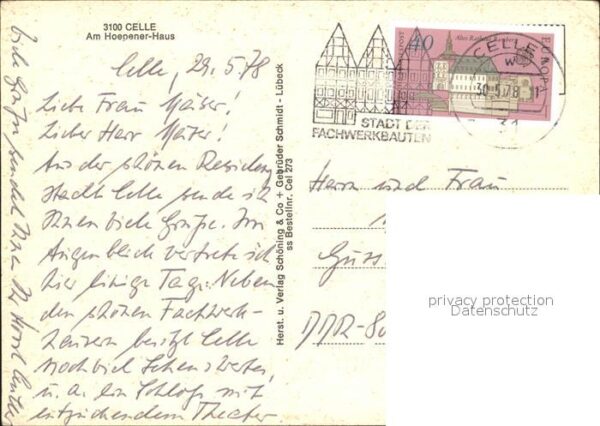 3100 CELLE
Am Hoepener-Haus
Celle, 29.5.78
Liebe Frau
Lieber Herr
Aus der schönen Residenz
stadt Celle sende ich
Ihnen viele Grüße. Im
Augenblick vertrete ich
hier einige Tage. Neben
den schönen Fachwerk-
häusern besitzt Celle
noch viel Sehenswertes,
u. a. ein Schloß mit
entzückendem Theater.
Viele Grüße sendet Ihnen Ihr Horst
Herst. u. Verlag Schöning & Co + Gebrüder Schmidt - Lübeck
ss Bestellnr. Cel 273
STADT DER
FACHWERKBAUTEN
40
EUROPA
CELLE
30.5.78
31
Herrn und Frau
DDR-
privacy protection
Datenschutz